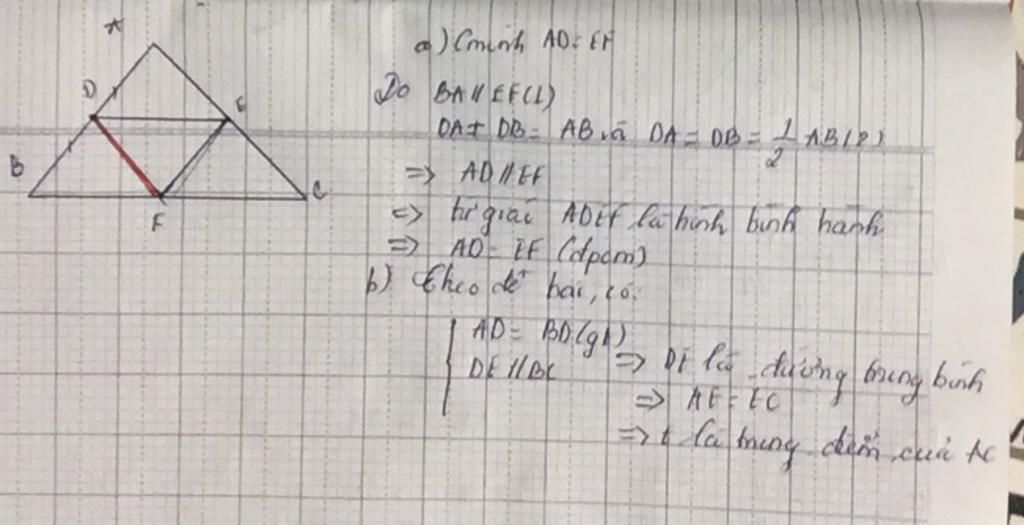 A
D
E
B
F
C
a) Cminh AD = EF
Do BA // EF (1)
DA + DB = AB và DA = DB = 1/2 AB (2)
=> AD // EF
=> tứ giác ADEF là hình bình hành
=> AD = EF (đpcm)
b) Theo đề bài, có:
AD = BD (gt)
DE // BC => DE là đường trung bình
=> AE = EC
=> E là trung điểm của AC